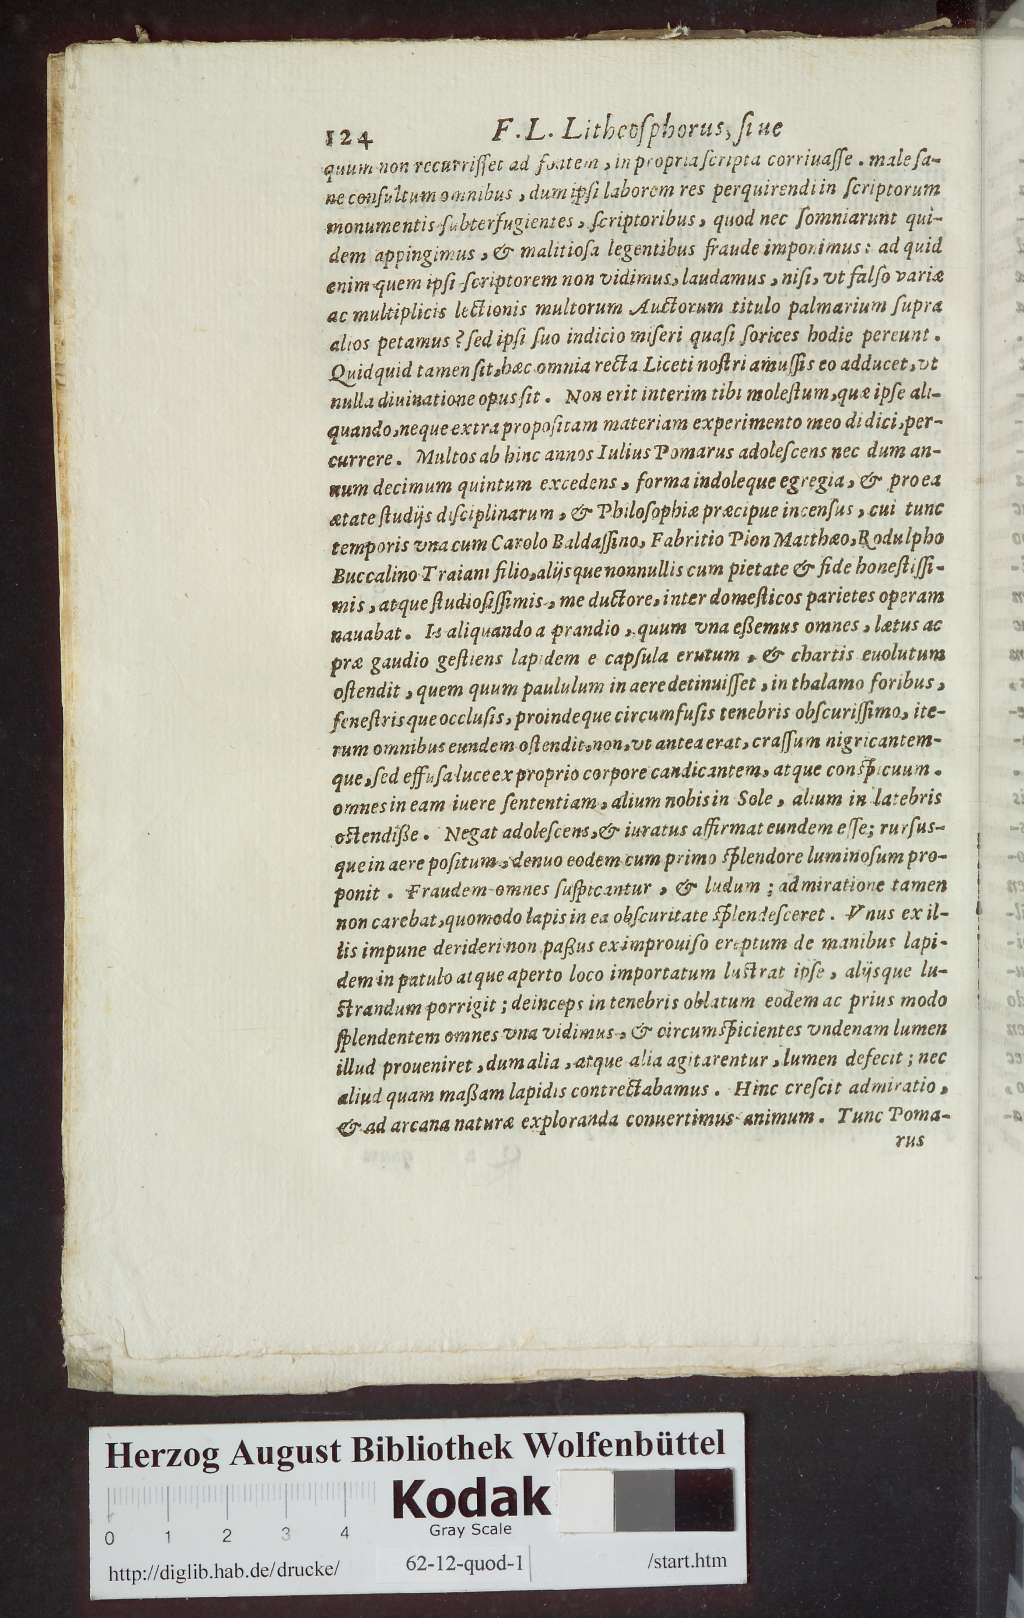 124 F. L. Litheosphorus, siue
quum non recurrisset ad fontem, in propria scripta corriuasse. male sa-
ne consultum omnibus, dum ipsi laborem res perquirendi in scriptorum
monumentis subterfugientes, scriptoribus, quod nec somniarunt qui-
dem appingimus, & malitiosa legentibus fraude imponimus: ad quid
enim quem ipsi scriptorem non vidimus, laudamus, nisi, vt falso variæ
ac multiplicis lectionis multorum Auctorum titulo palmarium supra
alios petamus? sed ipsi suo indicio miseri quasi sorices hodie pereunt.
Quidquid tamen sit, hæc omnia recta Liceti nostri amussis eo adducet, vt
nulla diuinatione opus sit. Non erit interim tibi molestum, quæ ipse ali-
quando, neque extra propositam materiam experimento meo didici, per-
currere. Multos ab hinc annos Iulius Pomarus adolescens nec dum an-
num decimum quintum excedens, forma indoleque egregia, & pro ea
ætate studijs disciplinarum, & Philosophiæ præcipue incensus, cui tunc
temporis vna cum Carolo Baldassino, Fabritio Pion Matthæo, Rodulpho
Buccalino Traiani filio, alijsque nonnullis cum pietate & fide honestissi-
mis, atque studiosissimis, me ductore, inter domesticos parietes operam
nauabat. Is aliquando a prandio, quum vna eßemus omnes, lætus ac
præ gaudio gestiens lapidem e capsula erutum, & chartis euolutum
ostendit, quem quum paululum in aere detinuisset, in thalamo foribus,
fenestrisque occlusis, proindeque circumfusis tenebris obscurissimo, ite-
rum omnibus eundem ostendit, non, vt antea erat, crassum nigricantem-
que, sed effusa luce ex proprio corpore candicantem, atque conspicuum.
omnes in eam iuere sententiam, alium nobis in Sole, alium in latebris
ostendiße. Negat adolescens, & iuratus affirmat eundem esse; rursus-
que in aere positum, denuo eodem cum primo splendore luminosum pro-
ponit. Fraudem omnes suspicantur, & ludum; admiratione tamen
non carebat, quomodo lapis in ea obscuritate splendesceret. Vnus ex il-
lis impune derideri non paßus ex improuiso ereptum de manibus lapi-
dem in patulo atque aperto loco importatum lustrat ipse, alijsque lu-
strandum porrigit; deinceps in tenebris oblatum eodem ac prius modo
splendentem omnes vna vidimus, & circumspicientes vndenam lumen
illud proueniret, dum alia, atque alia agitarentur, lumen defecit; nec
aliud quam maßam lapidis contrectabamus. Hinc crescit admiratio,
& ad arcana naturæ exploranda conuertimus animum. Tunc Poma-
rus
Herzog August Bibliothek Wolfenbüttel
Kodak
Gray Scale
0 1 2 3 4
http://diglib.hab.de/drucke/ 62-12-quod-1 /start.htm